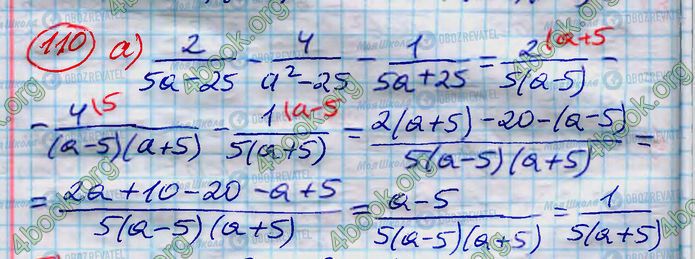 110 а) 2/(5a-25) - 4/(a²-25) - 1/(5a+25) = 2\a+5/(5(a-5)) -
- 4\5/((a-5)(a+5)) - 1\a-5/(5(a+5)) = (2(a+5)-20-(a-5))/(5(a-5)(a+5)) =
= (2a+10-20-a+5)/(5(a-5)(a+5)) = (a-5)/(5(a-5)(a+5)) = 1/(5(a+5))
4book.org
Моя Школа
OBOZREVATEL